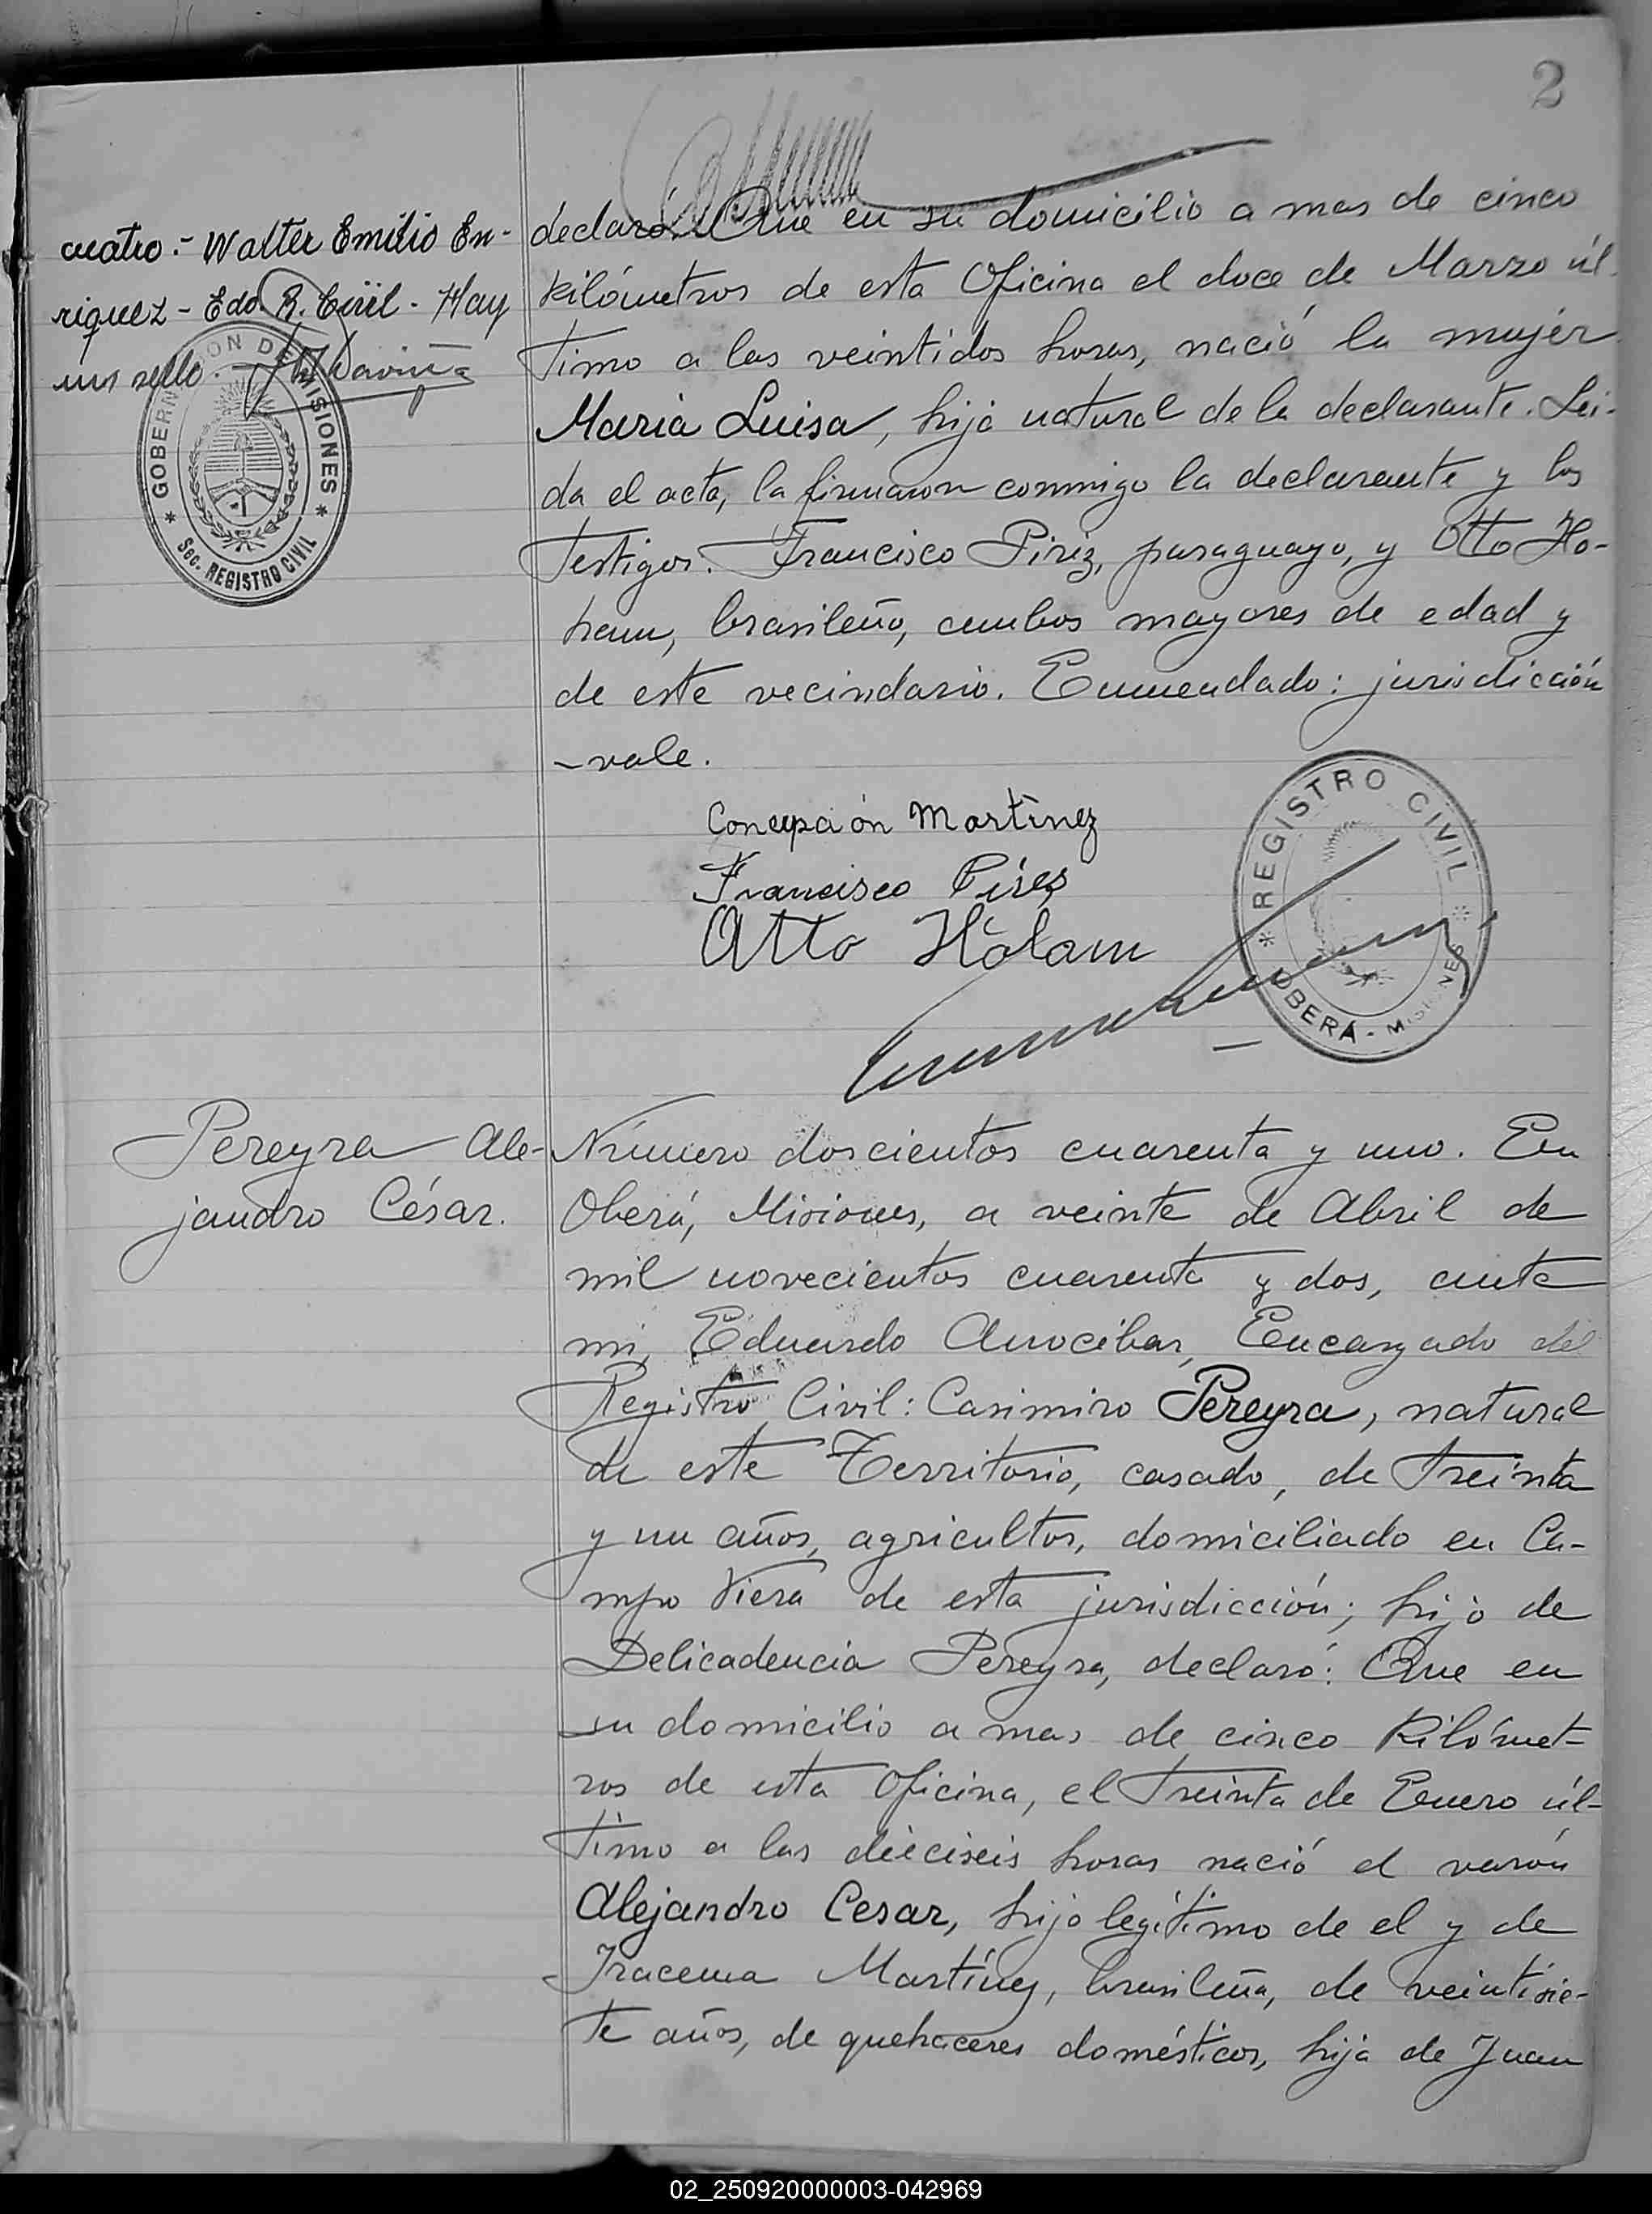 2
cuatro.- Walter Emilio En-
riquez - Edo. R. Civil - Hay
un sello.
GOBERNACION DE MISIONES
Sec. REGISTRO CIVIL
declaró: Que en su domicilio a mas de cinco
kilómetros de esta Oficina el doce de Marzo úl-
timo a las veintidos horas, nació la mujer
Maria Luisa, hija natural de la declarante. Lei-
da el acta, la firmaron conmigo la declarante y los
testigos: Francisco Piriz, paraguayo, y Otto Ho-
ham, brasileño, ambos mayores de edad y
de este vecindario. Enmendado: jurisdicción
-vale.
Concepción Martínez
Francisco Pires
Otto Holam
REGISTRO CIVIL
OBERÁ - MISIONES
Pereyra Ale-
jandro César.
Número doscientos cuarenta y uno. En
Oberá, Misiones, a veinte de Abril de
mil novecientos cuarenta y dos, ante
mi, Eduardo Arrocibar, Encargado del
Registro Civil: Casimiro Pereyra, natural
de este Territorio, casado, de treinta
y un años, agricultor, domiciliado en Ca-
mpo Viera de esta jurisdicción; hijo de
Delicadencia Pereyra, declaró: Que en
su domicilio a mas de cinco Kilómet-
ros de esta Oficina, el treinta de Enero úl-
timo a las dieciseis horas nació el varón
Alejandro Cesar, hijo legítimo de el y de
Iracema Martínez, brasileña, de veintisie-
te años, de quehaceres domésticos, hija de Juan
02_250920000003-042969